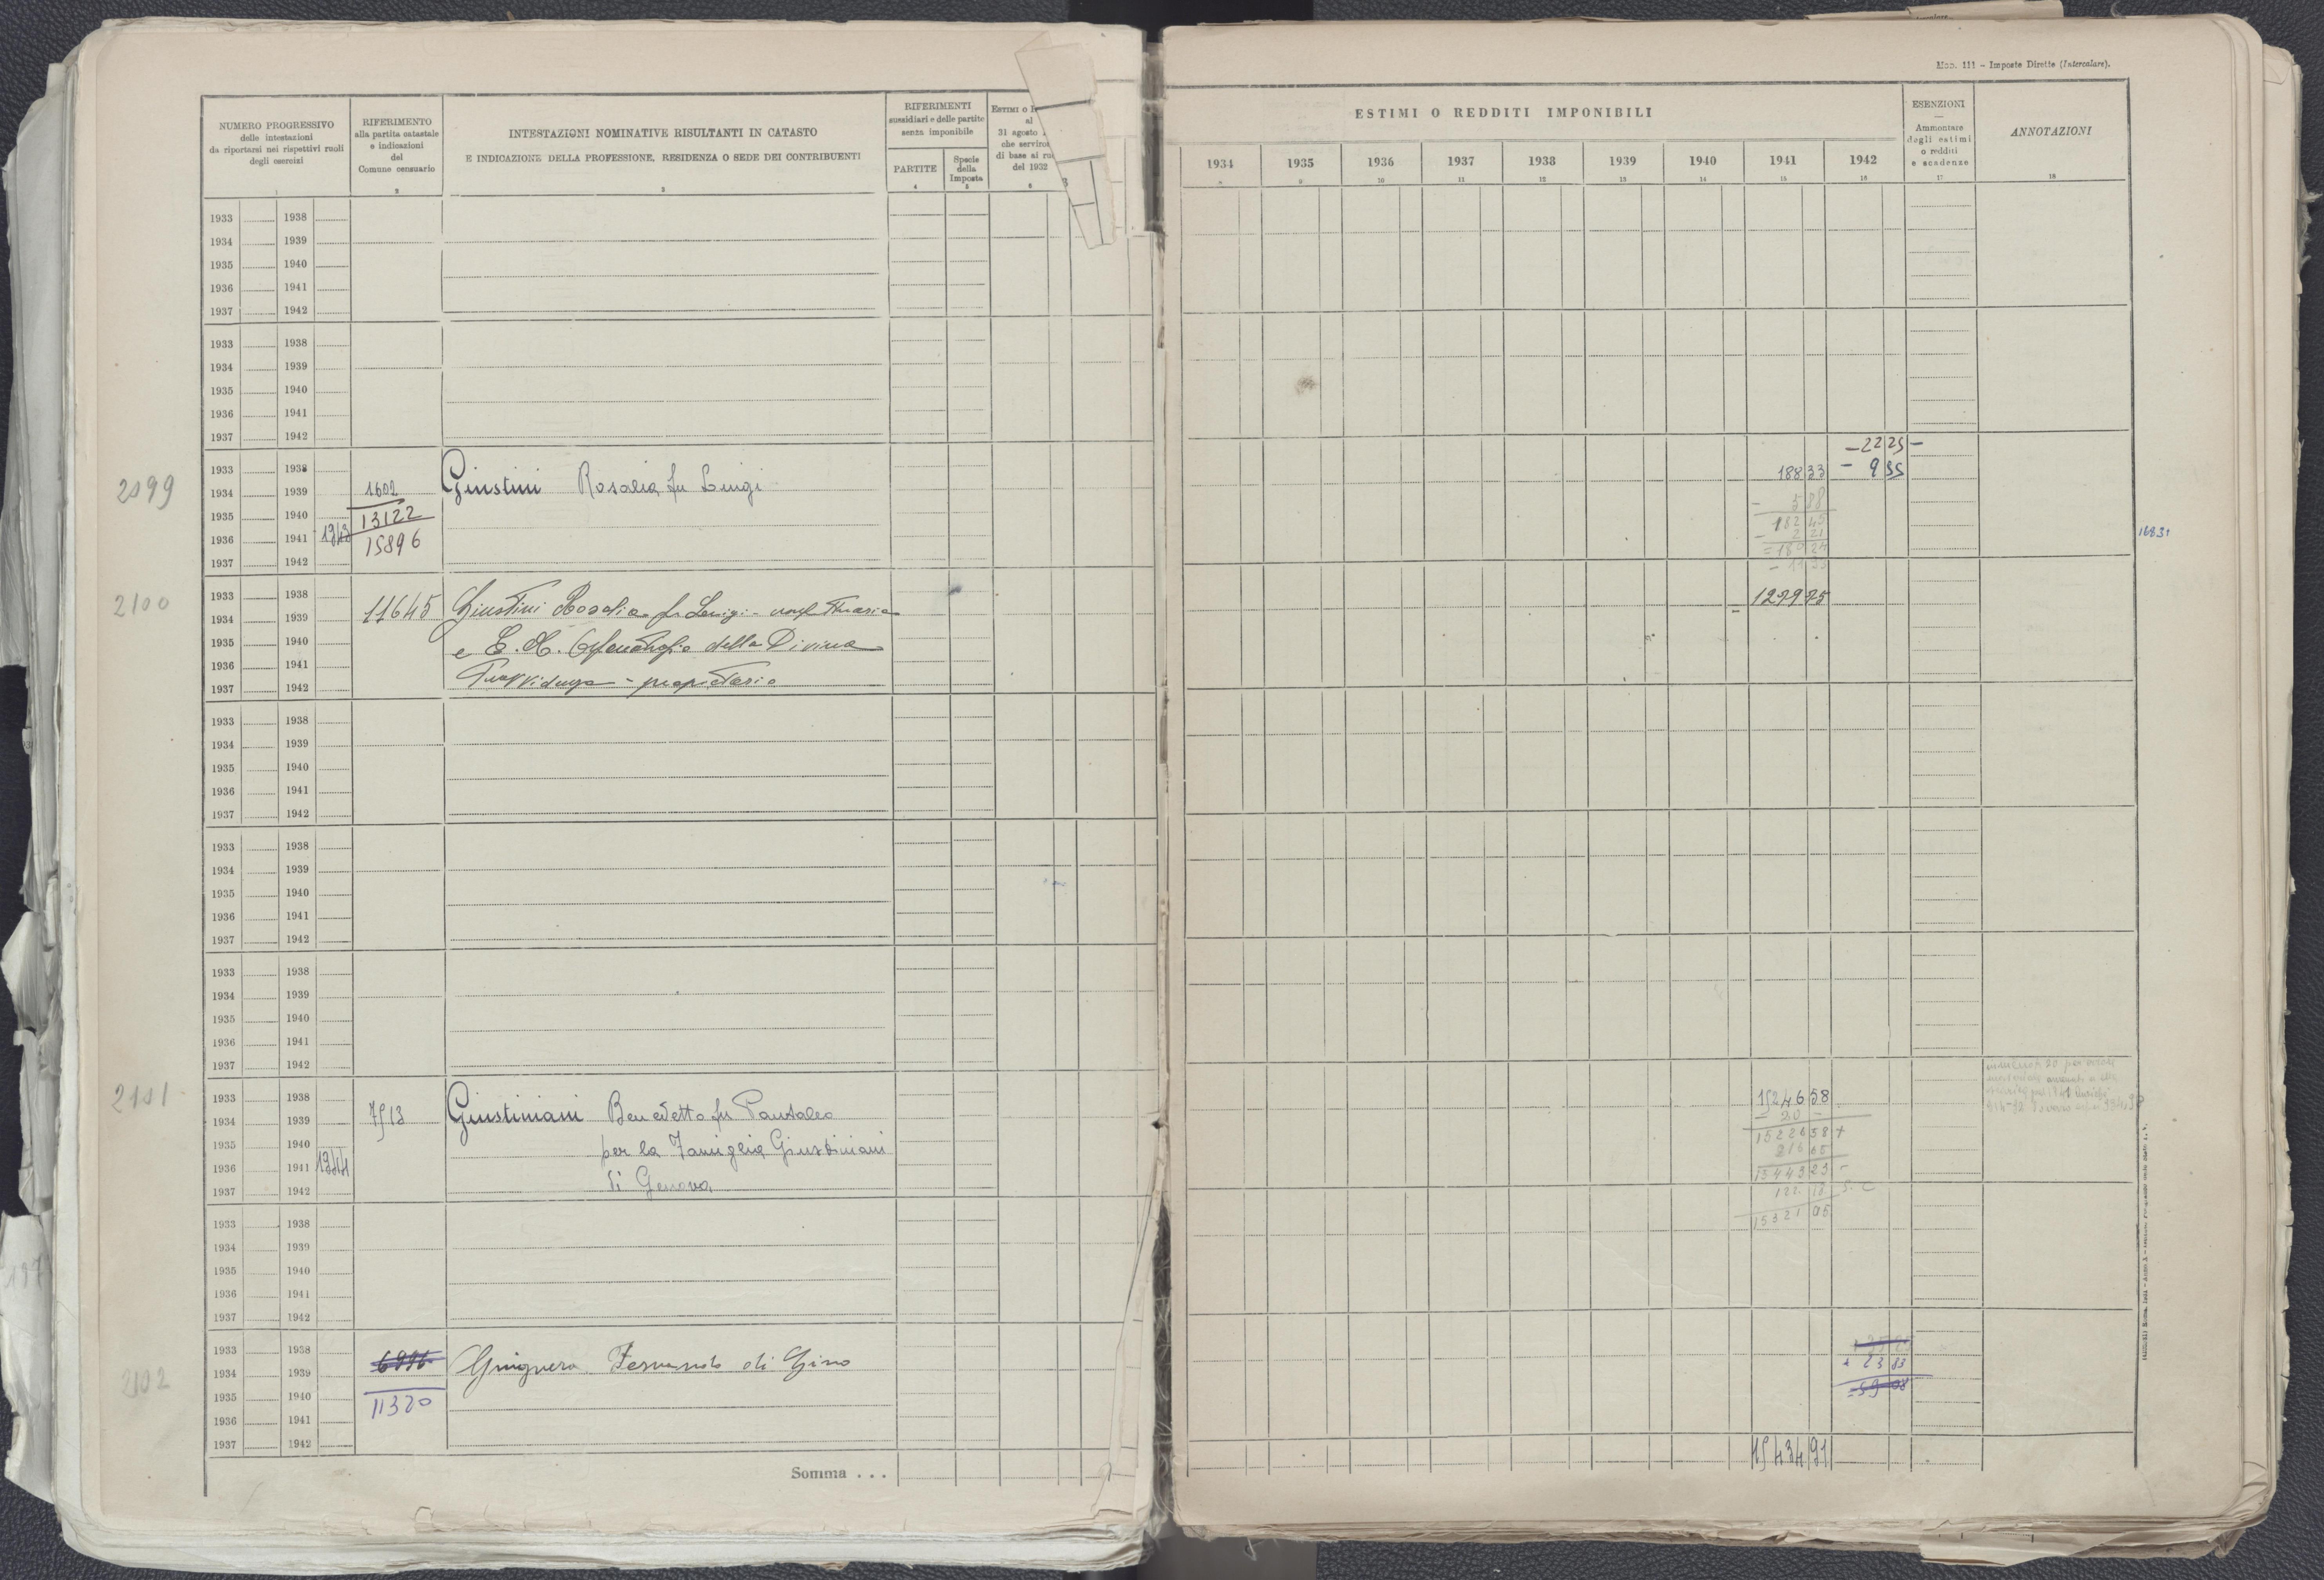 Mod. 111 - Imposte Dirette (Intercalare).
NUMERO PROGRESSIVO
delle intestazioni
da riportarsi nei rispettivi ruoli
degli esercizi
1
RIFERIMENTO
alla partita catastale
e indicazioni
del
Comune censuario
2
INTESTAZIONI NOMINATIVE RISULTANTI IN CATASTO
E INDICAZIONE DELLA PROFESSIONE, RESIDENZA O SEDE DEI CONTRIBUENTI
3
RIFERIMENTI
sussidiari e delle partite
senza imponibile
PARTITE
4
Specie
della
Imposta
5
ESTIMI O
al
31 agosto
che
di base ai
del 1932
6
ESTIMI O REDDITI IMPONIBILI
1934 1935 1936 1937 1938 1939 1940 1941 1942
9 10 11 12 13 14 15 16
ESENZIONI
Ammontare
degli estimi
o redditi
e scadenze
17
ANNOTAZIONI
18
1933 1938
1934 1939
1935 1940
1936 1941
1937 1942
1933 1938
1934 1939
1935 1940
1936 1941
1937 1942
- 22 25 -
1933 1938 188 33 - 9 55
2099 1934 1939 1602 Giustini Rosalia fu Luigi
- 5 88
1935 1940 13122
182 45
1936 1941 1313 15896
- 2 21
= 180 24
1937 1942
16831
1933 1938
2100 1934 1939 11645 Giustini Rosalia fu Luigi - usufruttuaria
1279 75
1935 1940 e E. M. Orfanotrofio della Divina
1936 1941
1937 1942 Provvidenza - proprietario
1933 1938
1934 1939
1935 1940
1936 1941
1937 1942
1933 1938
1934 1939
1935 1940
1936 1941
1937 1942
1933 1938
1934 1939
1935 1940
1936 1941
1937 1942
2101 1933 1938 15246 58
1934 1939 7513 Giustiniani Benedetto fu Pantaleo
- 20 -
15226 58 +
1935 1940 per la Famiglia Giustiniani
216 65
1936 1941 1314
15443 23 -
1937 1942 di Genova
15321 05
1933 1938
1934 1939
1935 1940
1936 1941
1937 1942
1933 1938 6996
2102 1934 1939 Fernando di Gino
+ 23 83
= 59 08
1935 1940 11320
1936 1941
1937 1942
Somma . . .
15434 91